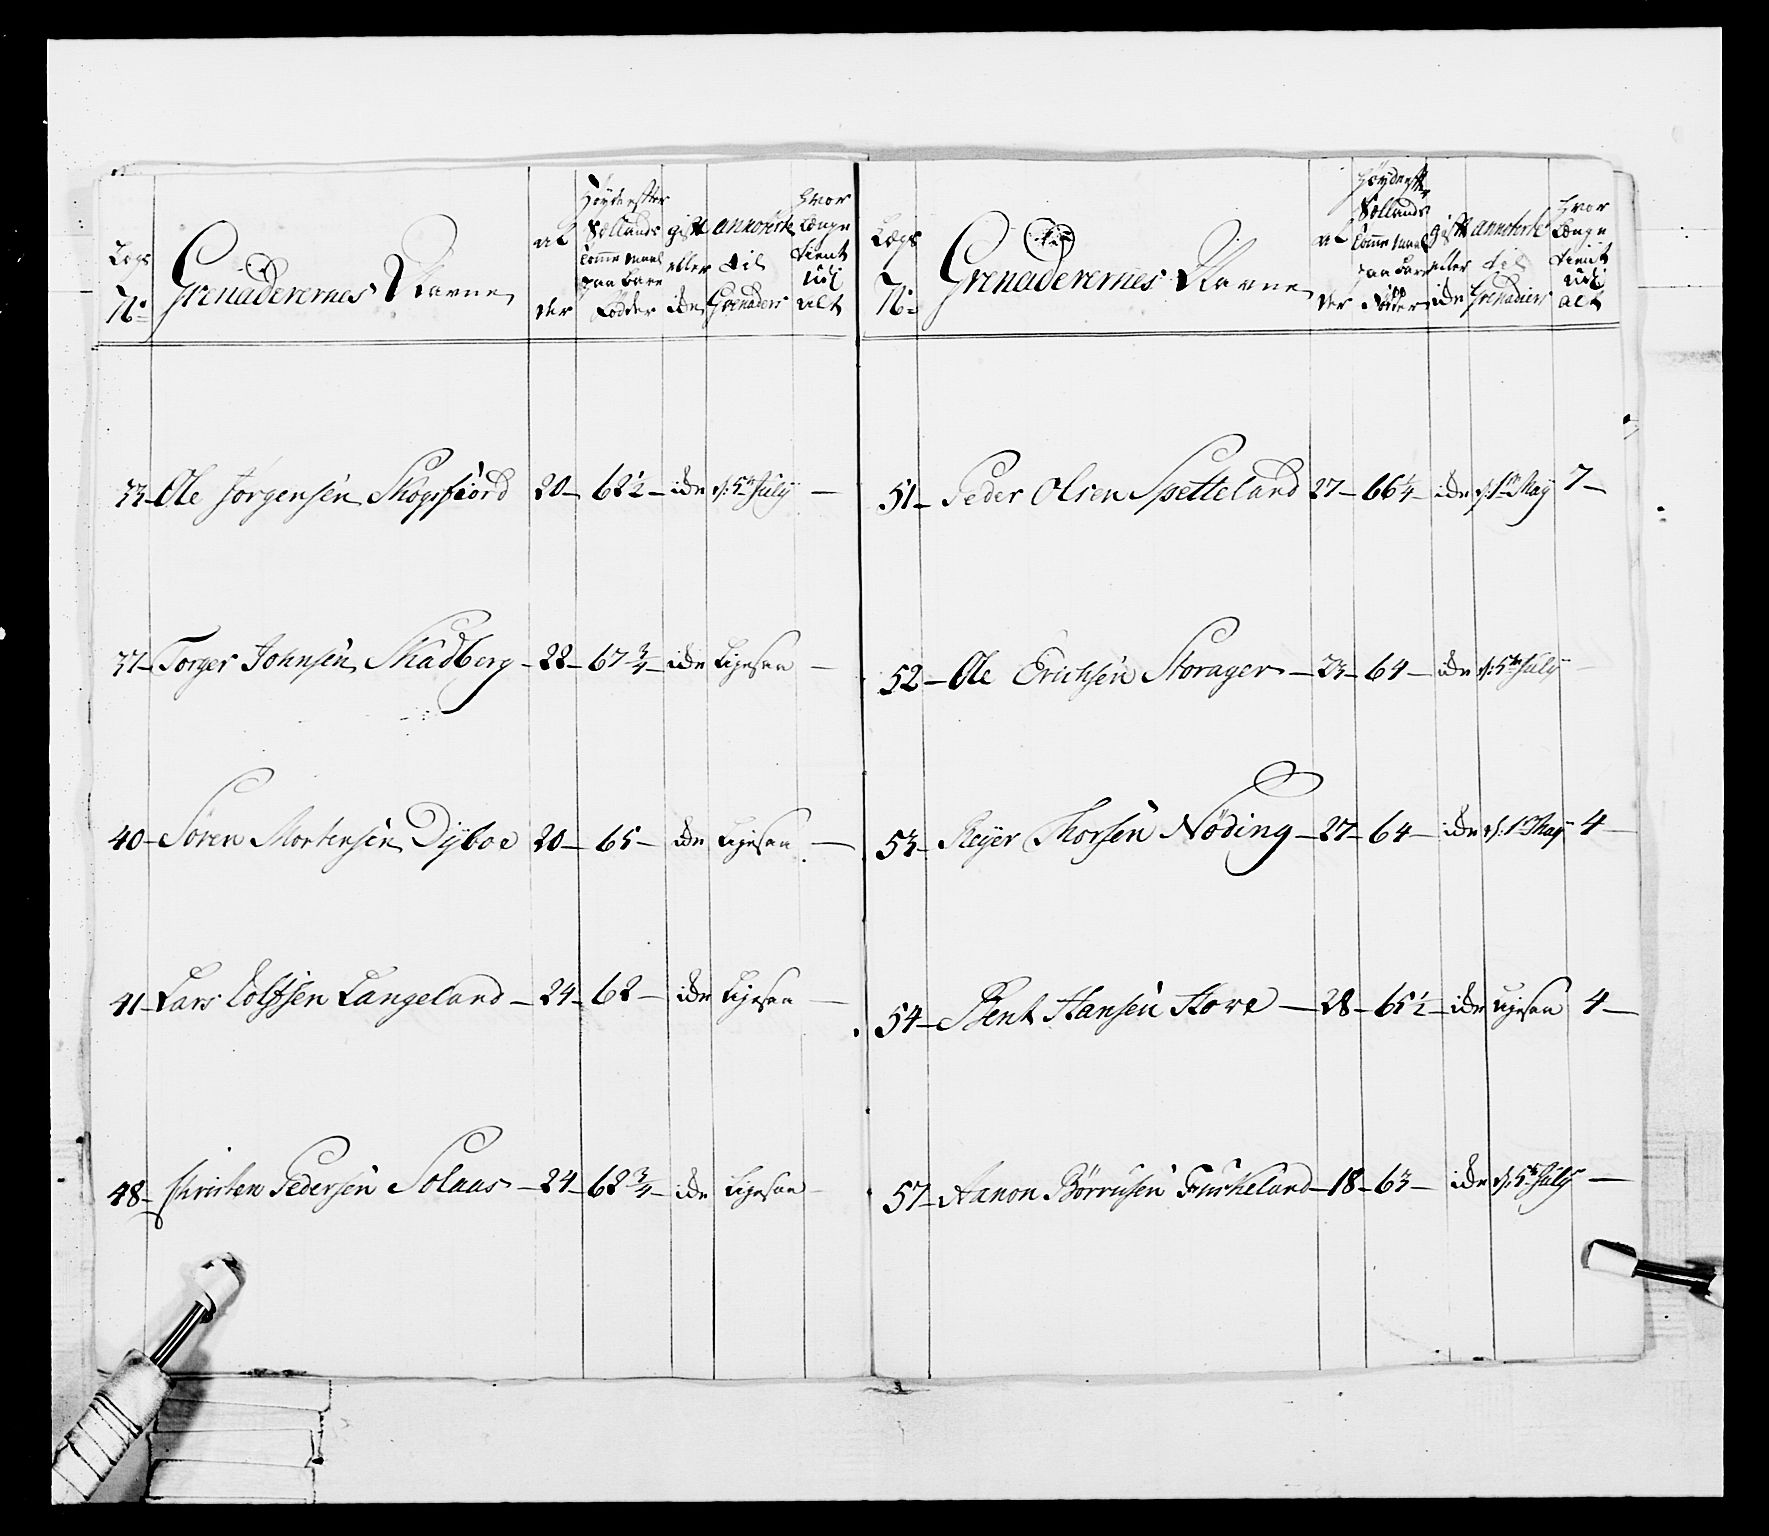 Legs No
Grenaderernes Navne
al der
Höyde efter Sællands Tomme Maal paa bare Födder
gift eller ide
annoterte til Grenaders
Hvor Længe tient udi alt
33 - Ole Jørgensen Skogsfiord 20 - 62½ - ide d: 5te July -
37 - Torger Johnsen Skadberg - 22 - 67¾ - ide Ligesaa -
40 - Sören Mortensen Dyboe 20 - 65 - ide Ligesaa -
41 - Lars Tolfsen Langeland - 24 - 62 - ide Ligesaa -
48 - Christen Pedersen Solaas - 24 - 62¾ - ide Ligesaa -
Lægs No
Grenaderernes Navne
al der
Höyde efter Sællands Tomme Maal paa bare Födder
gift eller ide
annoterte til Grenadiers
Hvor Længe tient udi alt
51 - Peder Olsen Spetteland 27 - 66¼ - ide d: 1te May 7 -
52 - Ole Erichsen Storager - 23 - 64 - ide d: 5te July -
53 - Reyer Thorsen Nøding - 27 - 64 - ide d: 1te May 4 -
54 - Bent Hansen Hove - 28 - 65½ - ide Ligesaa 4 -
57 - Aanon Börrusen Furkeland - 18 - 63 - ide d: 5te July -